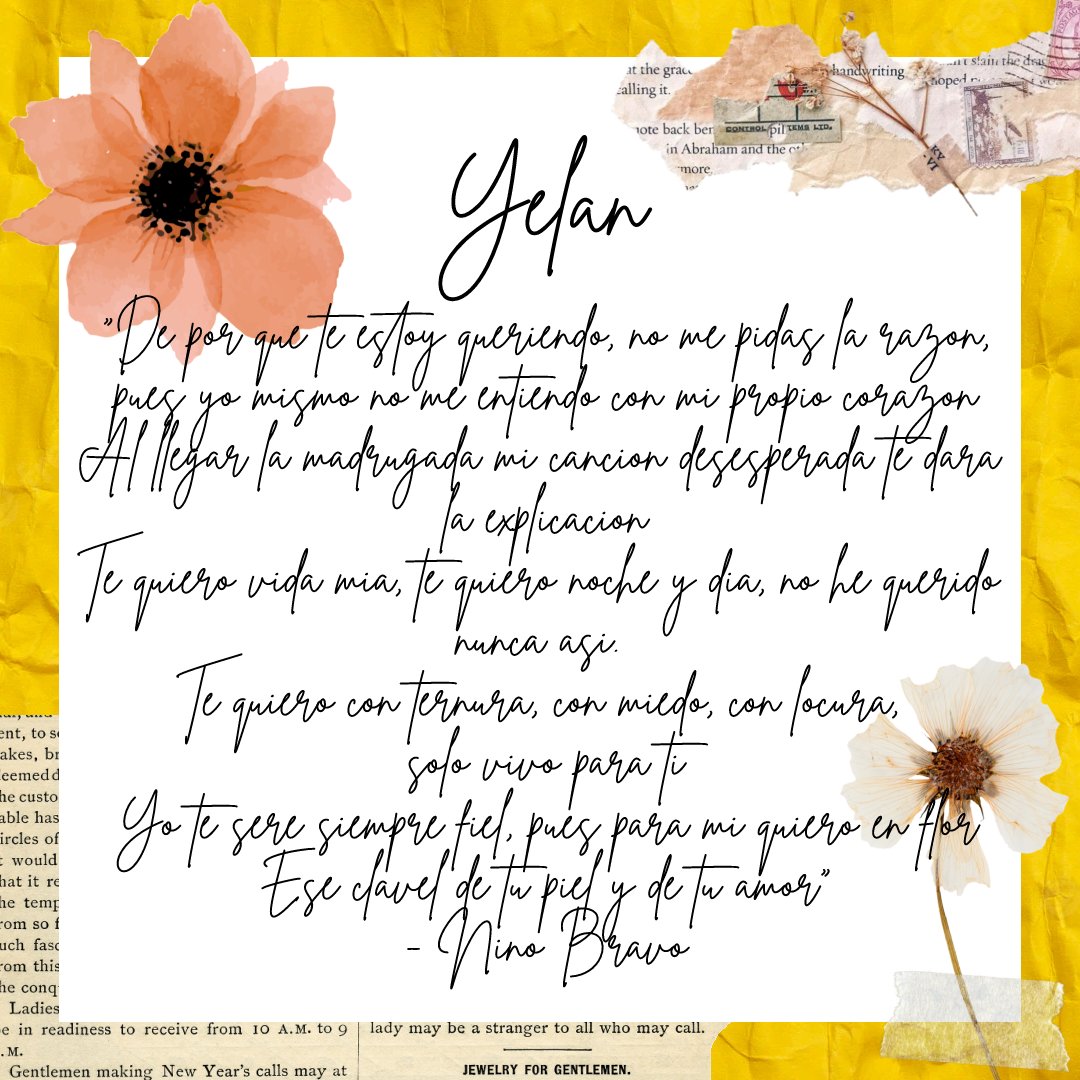 at the grac
calling it.
handwriting
note back ber
CONTROL
TEMS LTD.
in Abraham and the oth
more.
Yelan
"De por que te estoy queriendo, no me pidas la razon,
pues yo mismo no me entiendo con mi propio corazon
Al llegar la madrugada mi cancion desesperada te dara
la explicacion
Te quiero vida mia, te quiero noche y dia, no he querido
nunca asi.
Te quiero con ternura, con miedo, con locura,
solo vivo para ti
Yo te sere siempre fiel, pues para mi quiero en flor
Ese clavel de tu piel y de tu amor"
- Nino Bravo
ent, to s
akes, br
eemed d
he custo
able has
ircles of
t would
hat it re
he temp
rom so f
uch fasc
rom this
he conq
Ladies
e in readiness to receive from 10 A.M. to 9
.M.
Gentlemen making New Year's calls may at
lady may be a stranger to all who may call.
JEWELRY FOR GENTLEMEN.